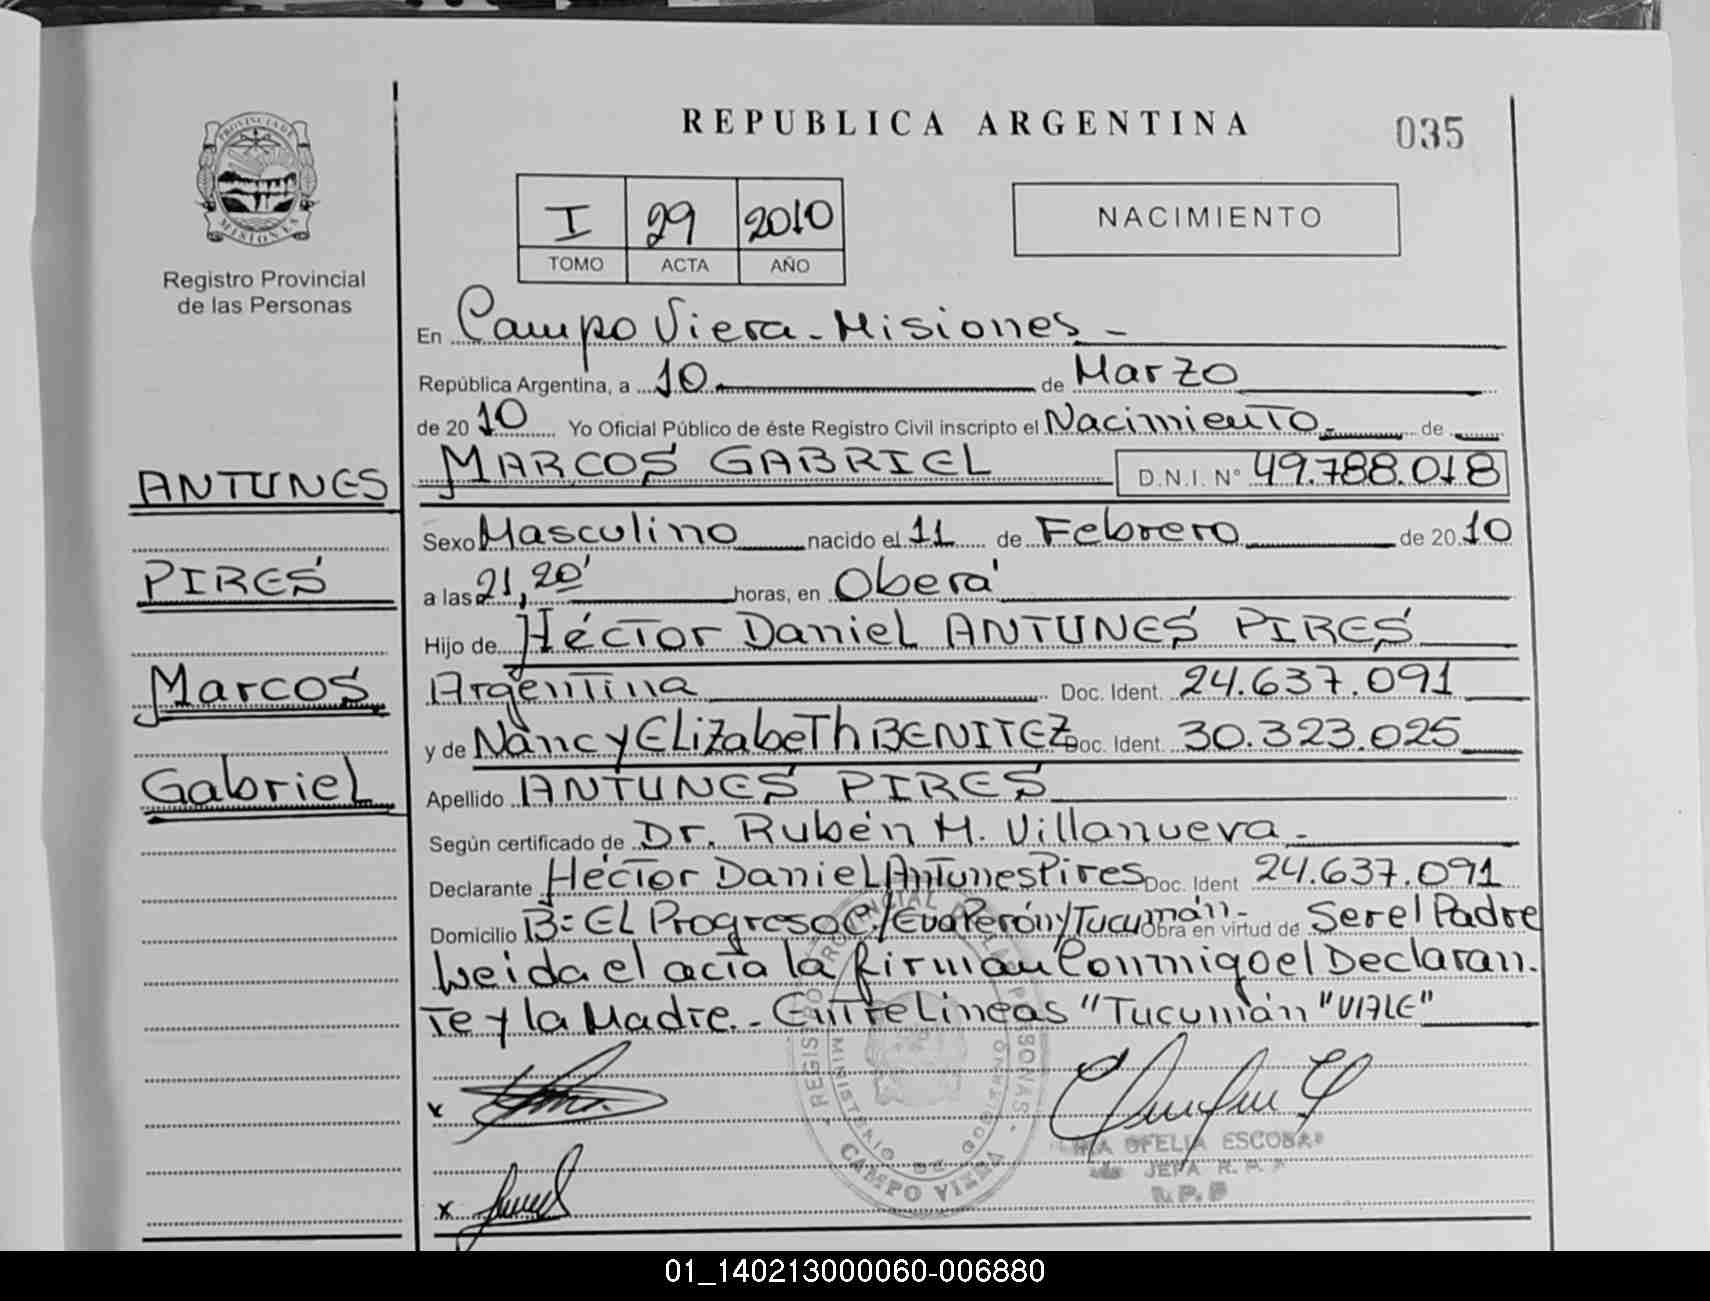 REPUBLICA ARGENTINA
035
PROVINCIA DE
MISIONES
Registro Provincial
de las Personas
I 29 2010
TOMO ACTA AÑO
NACIMIENTO
En Campo Viera - Misiones -
República Argentina, a 10 de Marzo
de 20 10 Yo Oficial Público de éste Registro Civil inscripto el Nacimiento de
MARCOS GABRIEL D.N.I. N° 49.788.018
ANTUNES
PIRES
Marcos
Gabriel
Sexo Masculino nacido el 11 de Febrero de 20 10
a las 21,20' horas, en Oberá
Hijo de Héctor Daniel ANTUNES PIRES
Argentina Doc. Ident. 24.637.091
y de Nancy Elizabeth BENITEZ Doc. Ident. 30.323.025
Apellido ANTUNES PIRES
Según certificado de Dr. Rubén M. Villanueva -
Declarante Héctor Daniel Antunes Pires Doc. Ident 24.637.091
Domicilio B= El Progreso C/Eva Perón y Tucumán - Obra en virtud de Ser el Padre
Leida el acta la firman Conmigo el Declaran.
te y la Madre. - Entre Lineas "Tucumán" "VALE"
x
x
REGISTRO PROVINCIAL DE LAS PERSONAS
MINISTERIO DE GOBIERNO
CAMPO VIERA
OFELIA ESCOBAR
JEFA R.
R. P. P
01_140213000060-006880